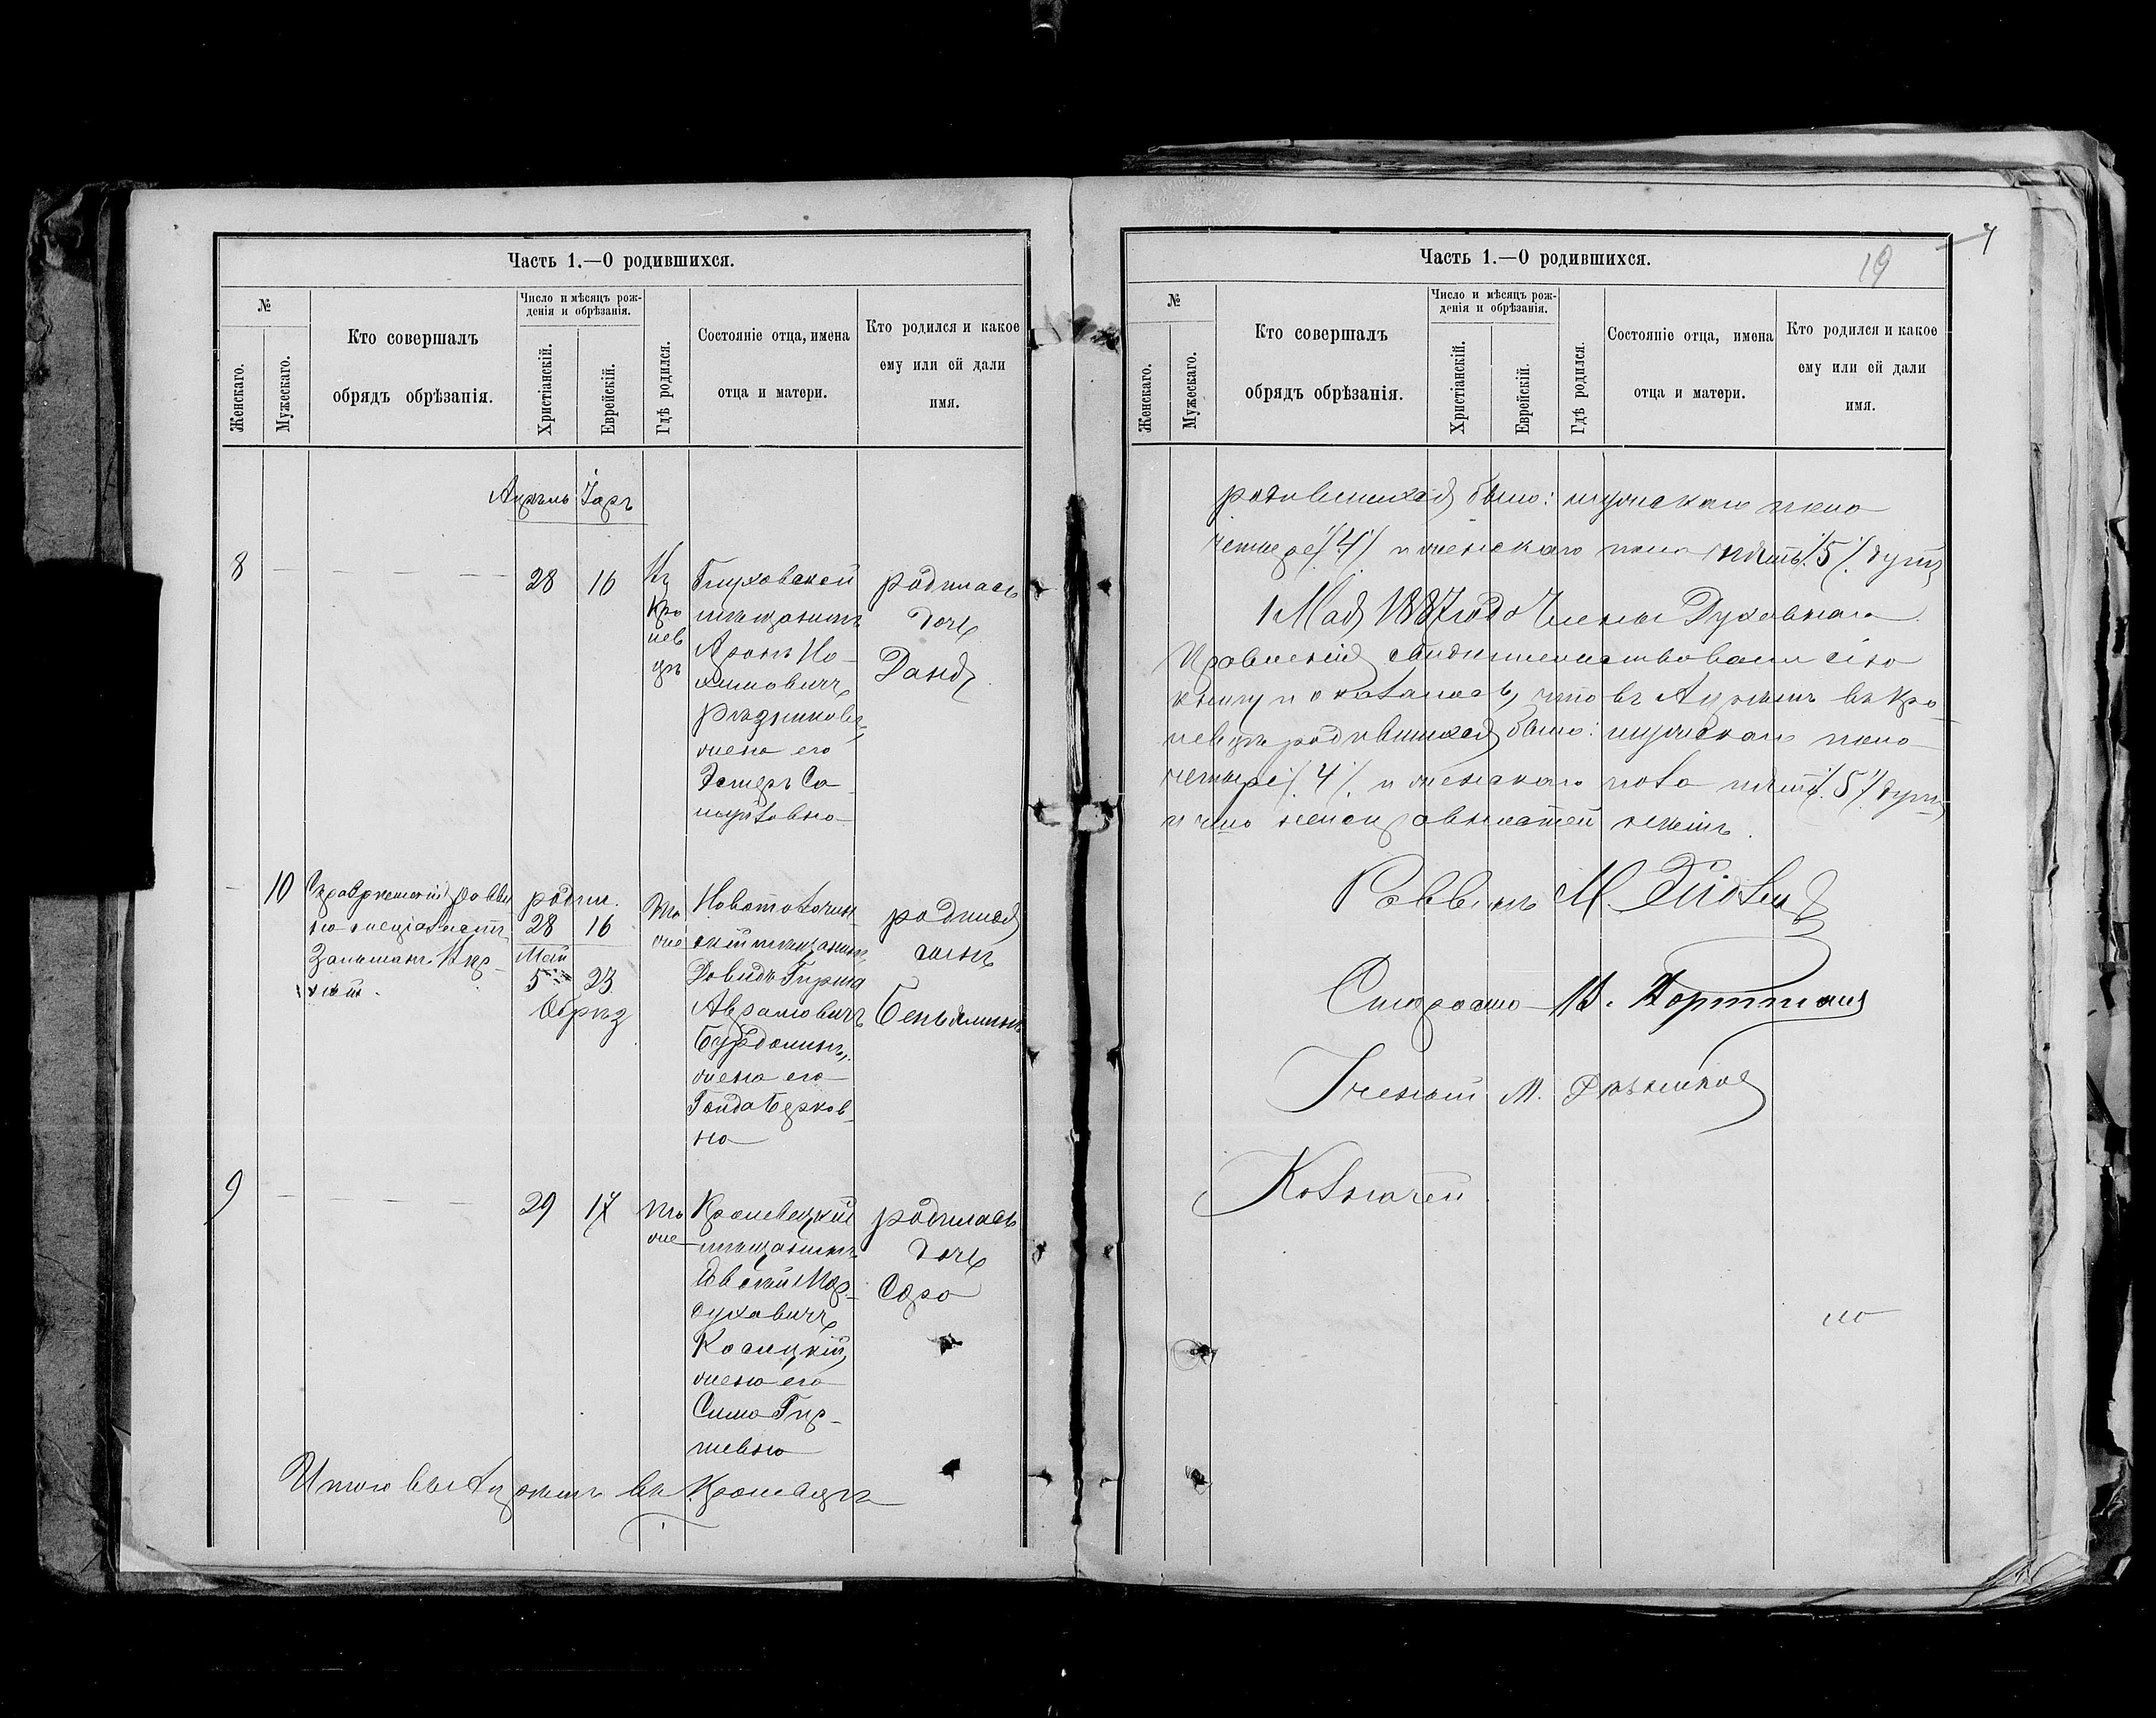 Часть 1.—О родившихся.
№
Женскаго.
Мужескаго.
Кто совершалъ
обрядъ обрѣзанія.
Число и мѣсяцъ рож-
денія и обрѣзанія.
Христіанскій.
Еврейскій.
Гдѣ родился.
Состояніе отца, имена
отца и матери.
Кто родился и какое
ему или ей дали
имя.
Апрѣль Іаръ
8 — — — — 28 16
Въ
Кро
лев
цѣ
Глуховской
мѣщанинъ
Аронъ Но-
химовичъ
Рѣзниковъ,
жена его
Эстеръ Са-
муйловна
родилась
дочь
10
родил.
28 16
Май
5 23
Обрѣз
То
же
мѣщанинъ
Довидъ Гирша
Абрамовичъ
жена его
Берков-
на
родился
сынъ
Беньяминъ
9 — — — — 29 17
То
же
Кролевецкій
мѣщанинъ
Мор-
духовичъ
Косицкій,
жена его
Сима Гир-
шевна
родилась
дочь
Сора
Итого въ Апрѣлѣ въ Кролевцѣ
Часть 1.—О родившихся.
19
7
№
Женскаго.
Мужескаго.
Кто совершалъ
обрядъ обрѣзанія.
Число и мѣсяцъ рож-
денія и обрѣзанія.
Христіанскій.
Еврейскій.
Гдѣ родился.
Состояніе отца, имена
отца и матери.
Кто родился и какое
ему или ей дали
имя.
родившихся было: мужскаго пола
четыре /.4/. и женскаго пола пять /.5/. душъ
1 Мая 1887 года Члены Духовнаго
Правленія свидѣтельствовали сію
книгу и оказалось, что въ Апрѣлѣ въ Кро-
левцѣ родившихся было: мужскаго пола
четыре /.4/. и женскаго пола пять /.5/. душъ,
и что неисправностей нѣтъ.
Раввинъ М.
Староста
Ученый М.
Казначей